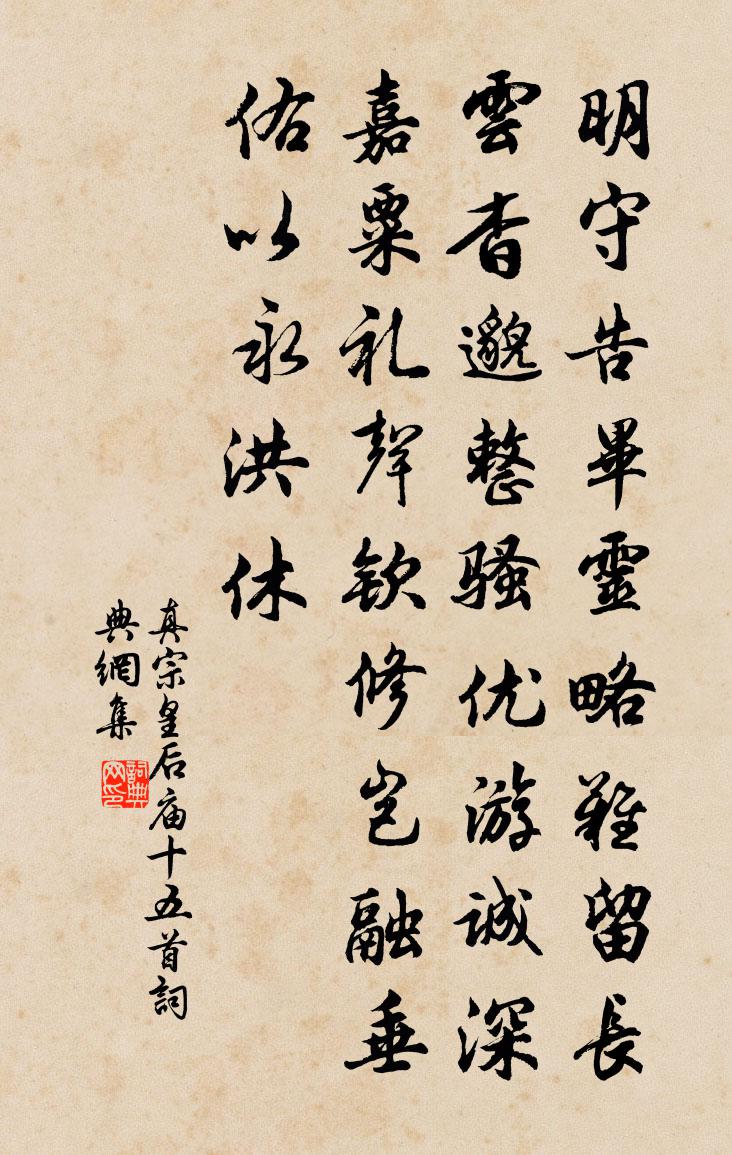 明守告畢靈略難留長
雲杳邈整骚优游诚深
嘉粟礼聲欽修岂融垂
佑以永洪休
真宗皇后庙十五首詞
典網集
詞典网印